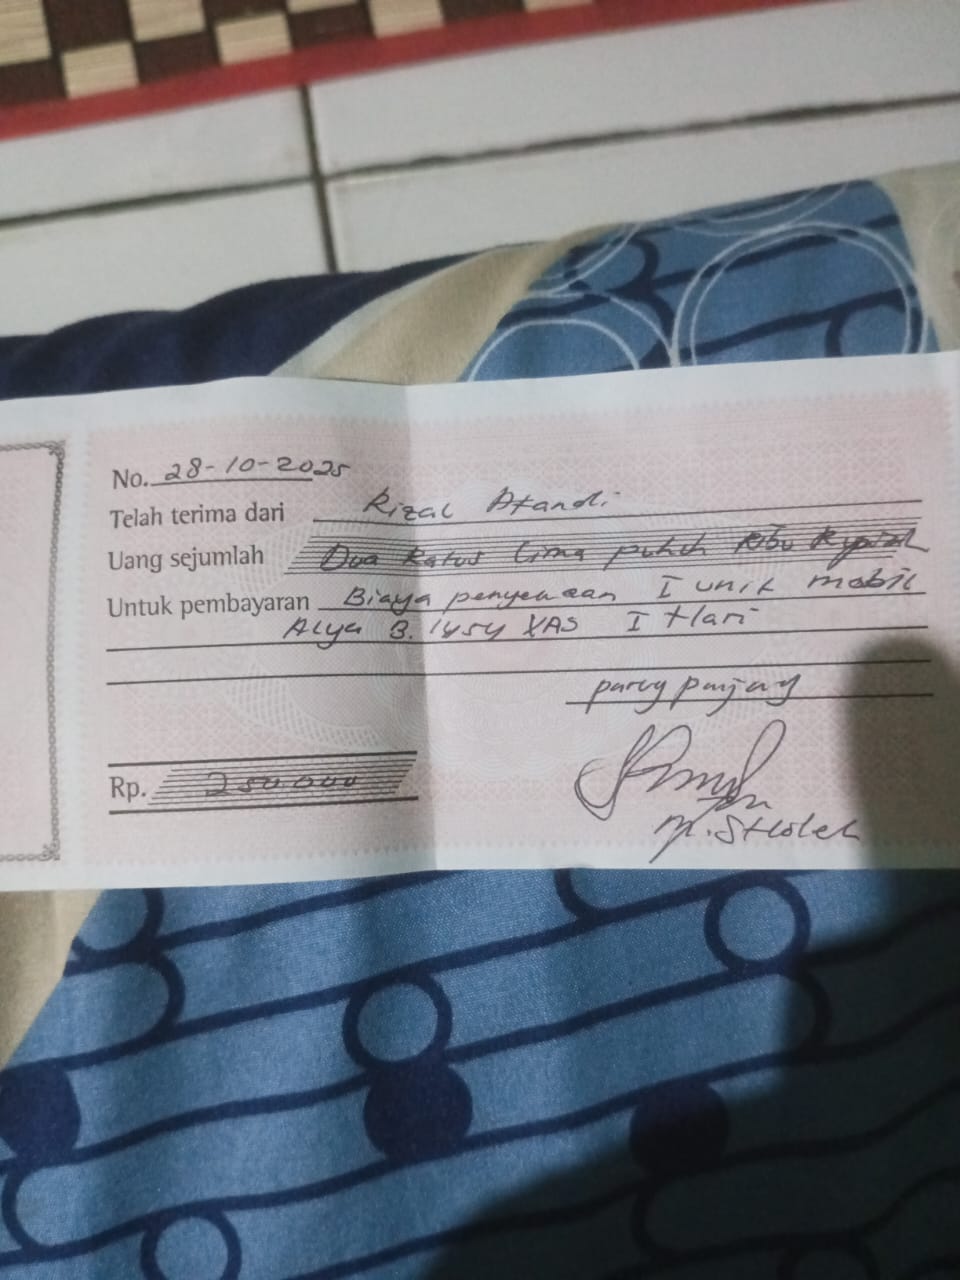 No. 28-10-2025
Telah terima dari Rizal Afandi
Uang sejumlah Dua Ratus Lima puluh Ribu Rupiah
Untuk pembayaran Biaya penyewaan I unit mobil
Alya B. 1454 I Hari
parung panjang
Rp. 250.000
M. SHoleh